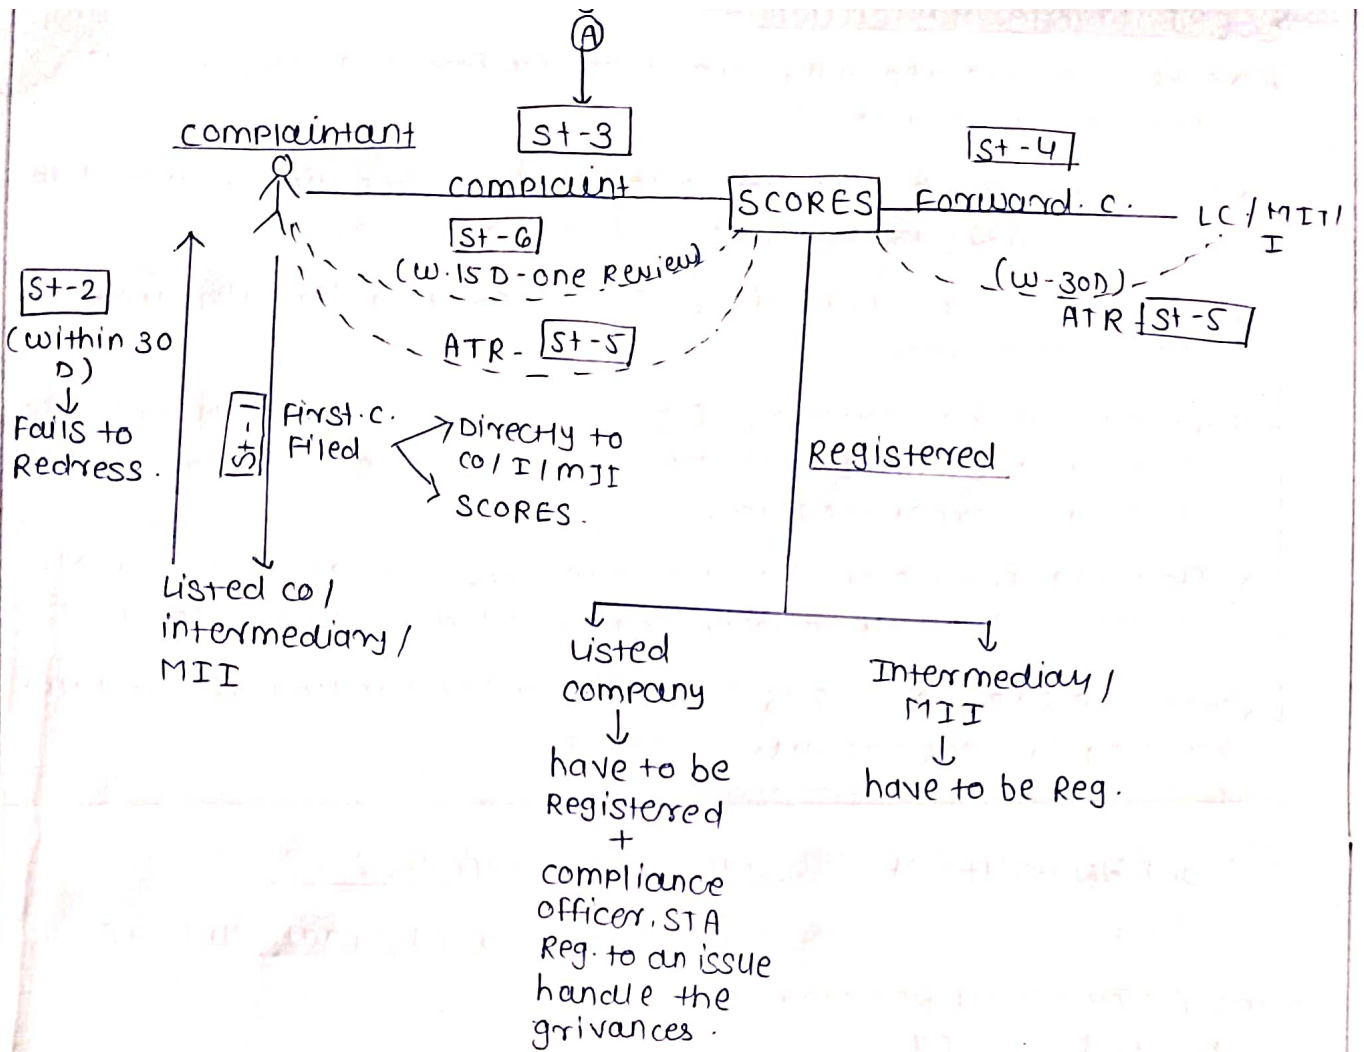 A
St-3
complaintant
St-4
complaint
SCORES
Forward. C.
LC / MII /
I
St-6
(W. 15 D - one Review)
(W - 30D)
ATR St-5
ATR - St-5
St-2
(within 30
D)
Fails to
Redress.
St-1
First. C.
Filed
Directly to
co / I / MII
SCORES.
Registered
Listed co /
intermediary /
MII
Listed
company
have to be
Registered
+
compliance
officer, STA
Reg. to an issue
handle the
grivances.
Intermediay /
MII
have to be Reg.